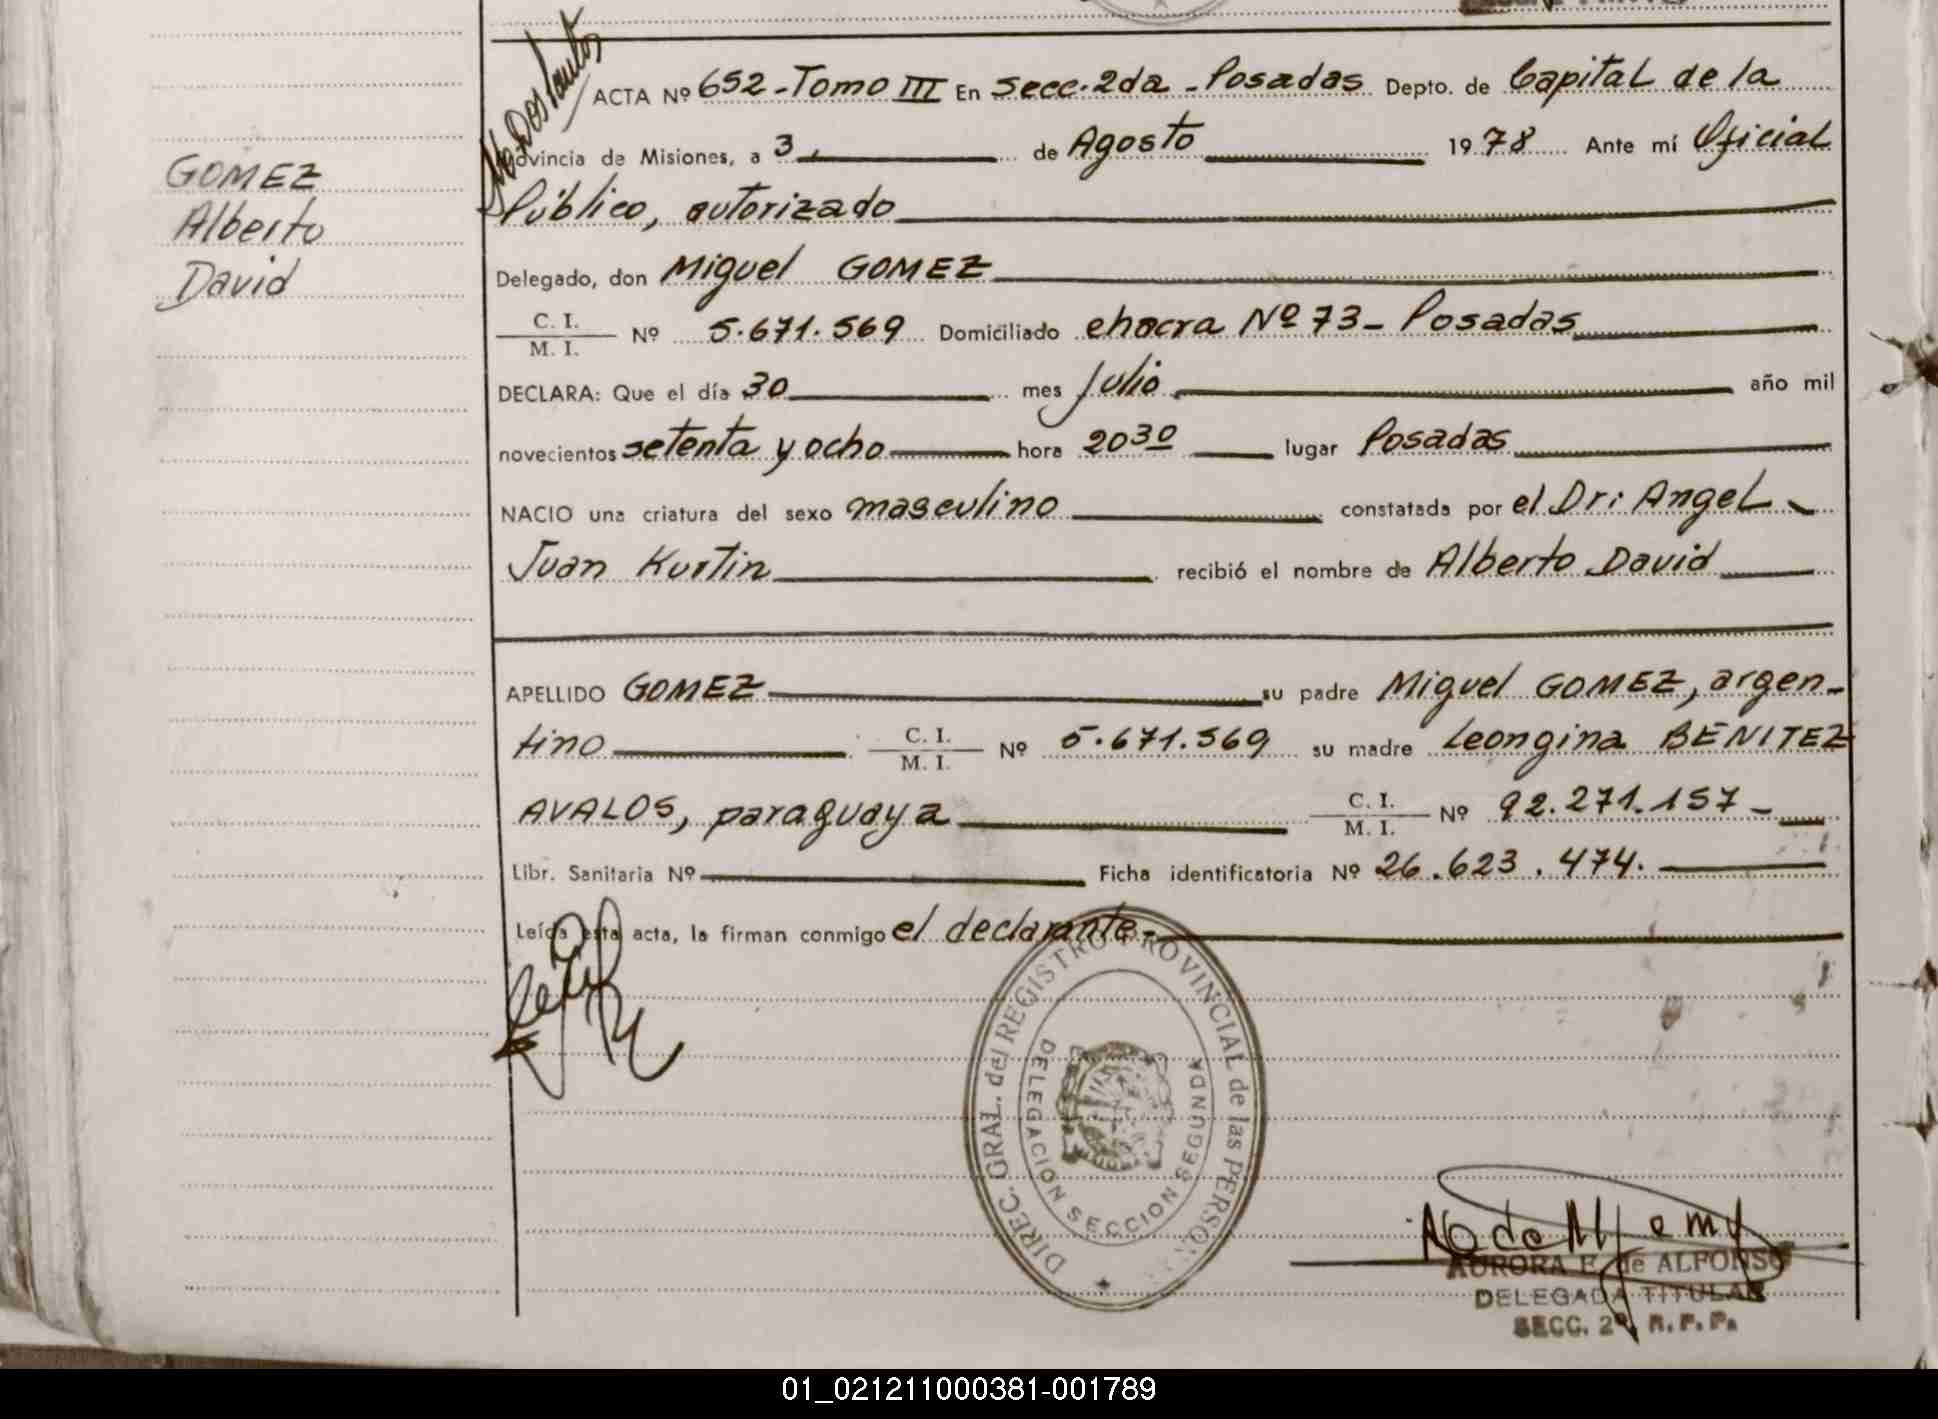 ACTA Nº 652-Tomo III En Secc. 2da - Posadas Depto. de Capital de la
Provincia de Misiones, a 3 de Agosto 1978 Ante mí Oficial
Público, autorizado
GOMEZ
Alberto
David
Delegado, don Miguel GOMEZ
C. I.
M. I. Nº 5.671.569 Domiciliado chacra Nº 73 - Posadas
DECLARA: Que el día 30 mes Julio año mil
novecientos setenta y ocho hora 20 30 lugar Posadas
NACIO una criatura del sexo masculino constatada por el Dr: Angel
Juan Kurtin recibió el nombre de Alberto David
APELLIDO GOMEZ su padre Miguel GOMEZ, argen-
tino C. I. M. I. Nº 5.671.569 su madre Leongina BENITEZ
AVALOS, paraguaya C. I. M. I. Nº 92.271.157-
Libr. Sanitaria Nº Ficha identificatoria Nº 26.623.474.
Leída esta acta, la firman conmigo el declarante-
DIREC. GRAL. del REGISTRO PROVINCIAL de las PERSONAS
DELEGACION SECCION SEGUNDA
AURORA F. de ALFONSO
DELEGADA TITULAR
SECC. 2ª R.P.P.
01_021211000381-001789